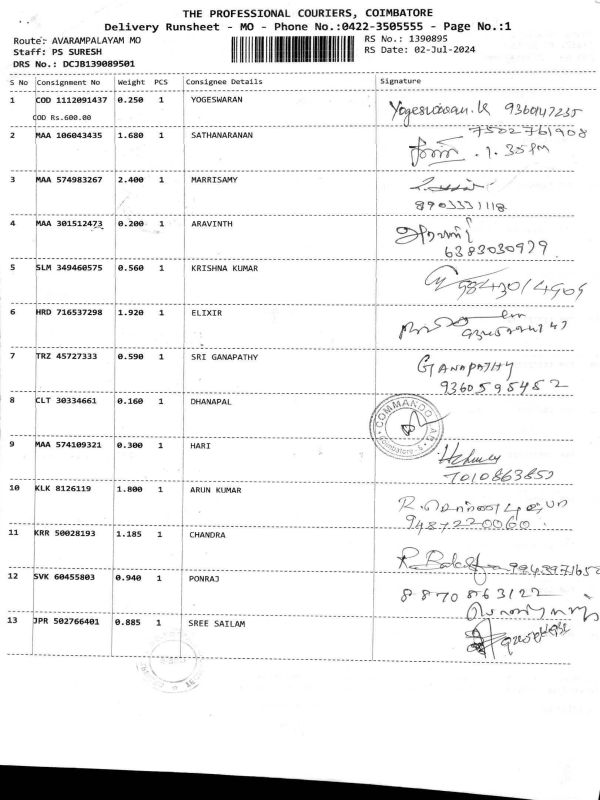 THE PROFESSIONAL COURIERS, COIMBATORE
Delivery Runsheet - MO - Phone No.:0422-3505555 - Page No.:1
Route: AVARAMPALAYAM MO RS No.: 1390895
Staff: PS SURESH RS Date: 02-Jul-2024
DRS No.: DCJB139089501
S No Consignment No Weight PCS Consignee Details Signature
1 COD 1112091437 0.250 1 YOGESWARAN Yogeswaran.K 9360147235
COD Rs.600.00
7502761908
2 MAA 106043435 1.680 1 SATHANARANAN 1.35 PM
3 MAA 574983267 2.400 1 MARRISAMY
8903331118
4 MAA 301512473 0.200 1 ARAVINTH அரவிந்
6383030979
5 SLM 349460575 0.560 1 KRISHNA KUMAR 9843014909
6 HRD 716537298 1.920 1 ELIXIR
7 TRZ 45727333 0.590 1 SRI GANAPATHY GANAPATHY
9360595452
8 CLT 30334661 0.160 1 DHANAPAL COMMANDO
Coimbatore
9 MAA 574109321 0.300 1 HARI
7010863852
10 KLK 8126119 1.800 1 ARUN KUMAR
9487220060
11 KRR 50028193 1.185 1 CHANDRA 9943971652
12 SVK 60455803 0.940 1 PONRAJ 8870863122
13 JPR 502766401 0.885 1 SREE SAILAM